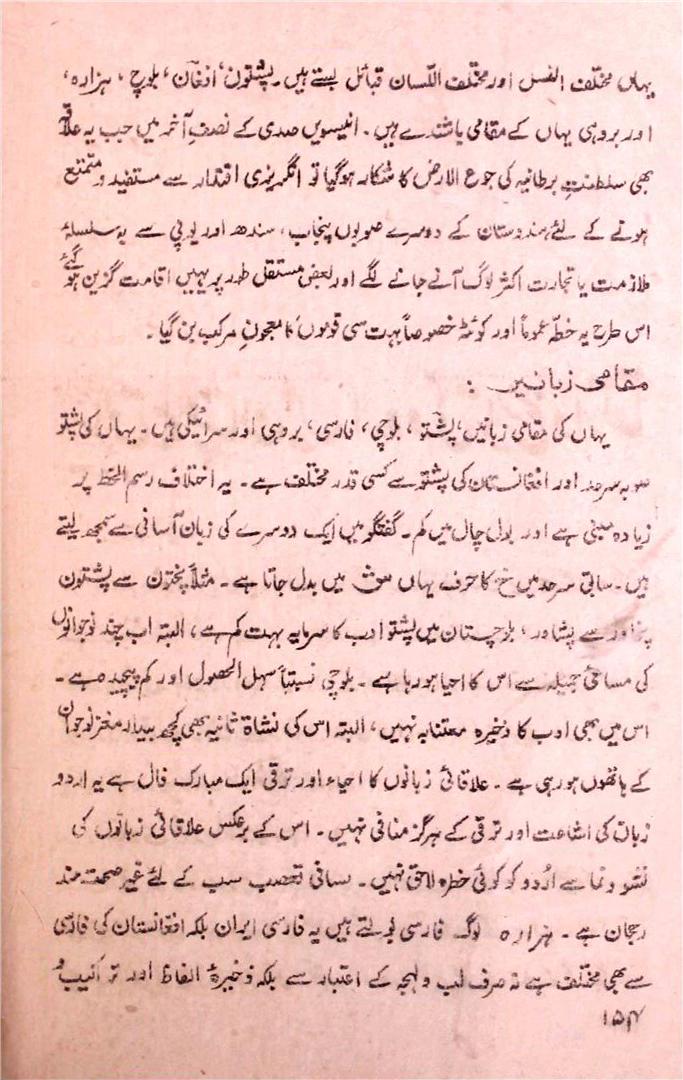 یہاں مختلف النسل اور مختلف اللسان قبائل بستے ہیں۔ پشتون، افغان، بلوچ، ہزارہ،
اور بروہی یہاں کے مقامی باشندے ہیں۔ انیسویں صدی کے نصفِ آخر میں جب یہ علاقہ
بھی سلطنتِ برطانیہ کی جوع الارض کا شکار ہوگیا تو انگریزی اقتدار سے مستفید و متمتع
ہونے کے لئے ہندوستان کے دوسرے صوبوں پنجاب، سندھ اور یوپی سے بہ سلسلۂ
ملازمت یا تجارت اکثر لوگ آنے جانے لگے اور بعض مستقل طور پر یہیں اقامت گزین ہو گئے
اس طرح یہ خطہ عموماً اور کوئٹہ خصوصاً بہت سی قوموں کا معجونِ مرکب بن گیا۔
مقامی زبانیں :
یہاں کی مقامی زبانیں، پشتو، بلوچی، فارسی، بروہی اور سرائیکی ہیں۔ یہاں کی پشتو
صوبہ سرحد اور افغانستان کی پشتو سے کسی قدر مختلف ہے۔ یہ اختلاف رسم الخط پر
زیادہ مبنی ہے اور بول چال میں کم۔ گفتگو میں ایک دوسرے کی زبان آسانی سے سمجھ لیتے
ہیں۔ سابق سرحد میں خ کا حرف یہاں ش میں بدل جاتا ہے۔ مثلاً پختون سے پشتون
سے پشاور، بلوچستان میں پشتو ادب کا سرمایہ بہت کم ہے، البتہ اب چند نوجوانوں
کی مساعیٔ جمیلہ سے اس کا احیا ہو رہا ہے۔ بلوچی نسبتاً سہل الحصول اور کم پیچیدہ ہے۔
اس میں بھی ادب کا ذخیرہ معتنابہ نہیں، البتہ اس کی نشاۃ ثانیہ بھی کچھ بیدار مغز نوجوان
کے ہاتھوں ہو رہی ہے۔ علاقائی زبانوں کا احیاء اور ترقی ایک مبارک فال ہے یہ اردو
زبان کی اشاعت اور ترقی کے ہرگز منافی نہیں۔ اس کے برعکس علاقائی زبانوں کی
نشو و نما سے اُردو کو کوئی خطرہ لاحق نہیں۔ لسانی تعصب سب کے لئے غیر صحت مند
رجحان ہے۔ ہزارہ لوگ فارسی بولتے ہیں یہ فارسی ایران بلکہ افغانستان کی فارسی
سے بھی مختلف ہے نہ صرف لب و لہجہ کے اعتبار سے بلکہ ذخیرۂ الفاظ اور تراکیب و
۱۵۴